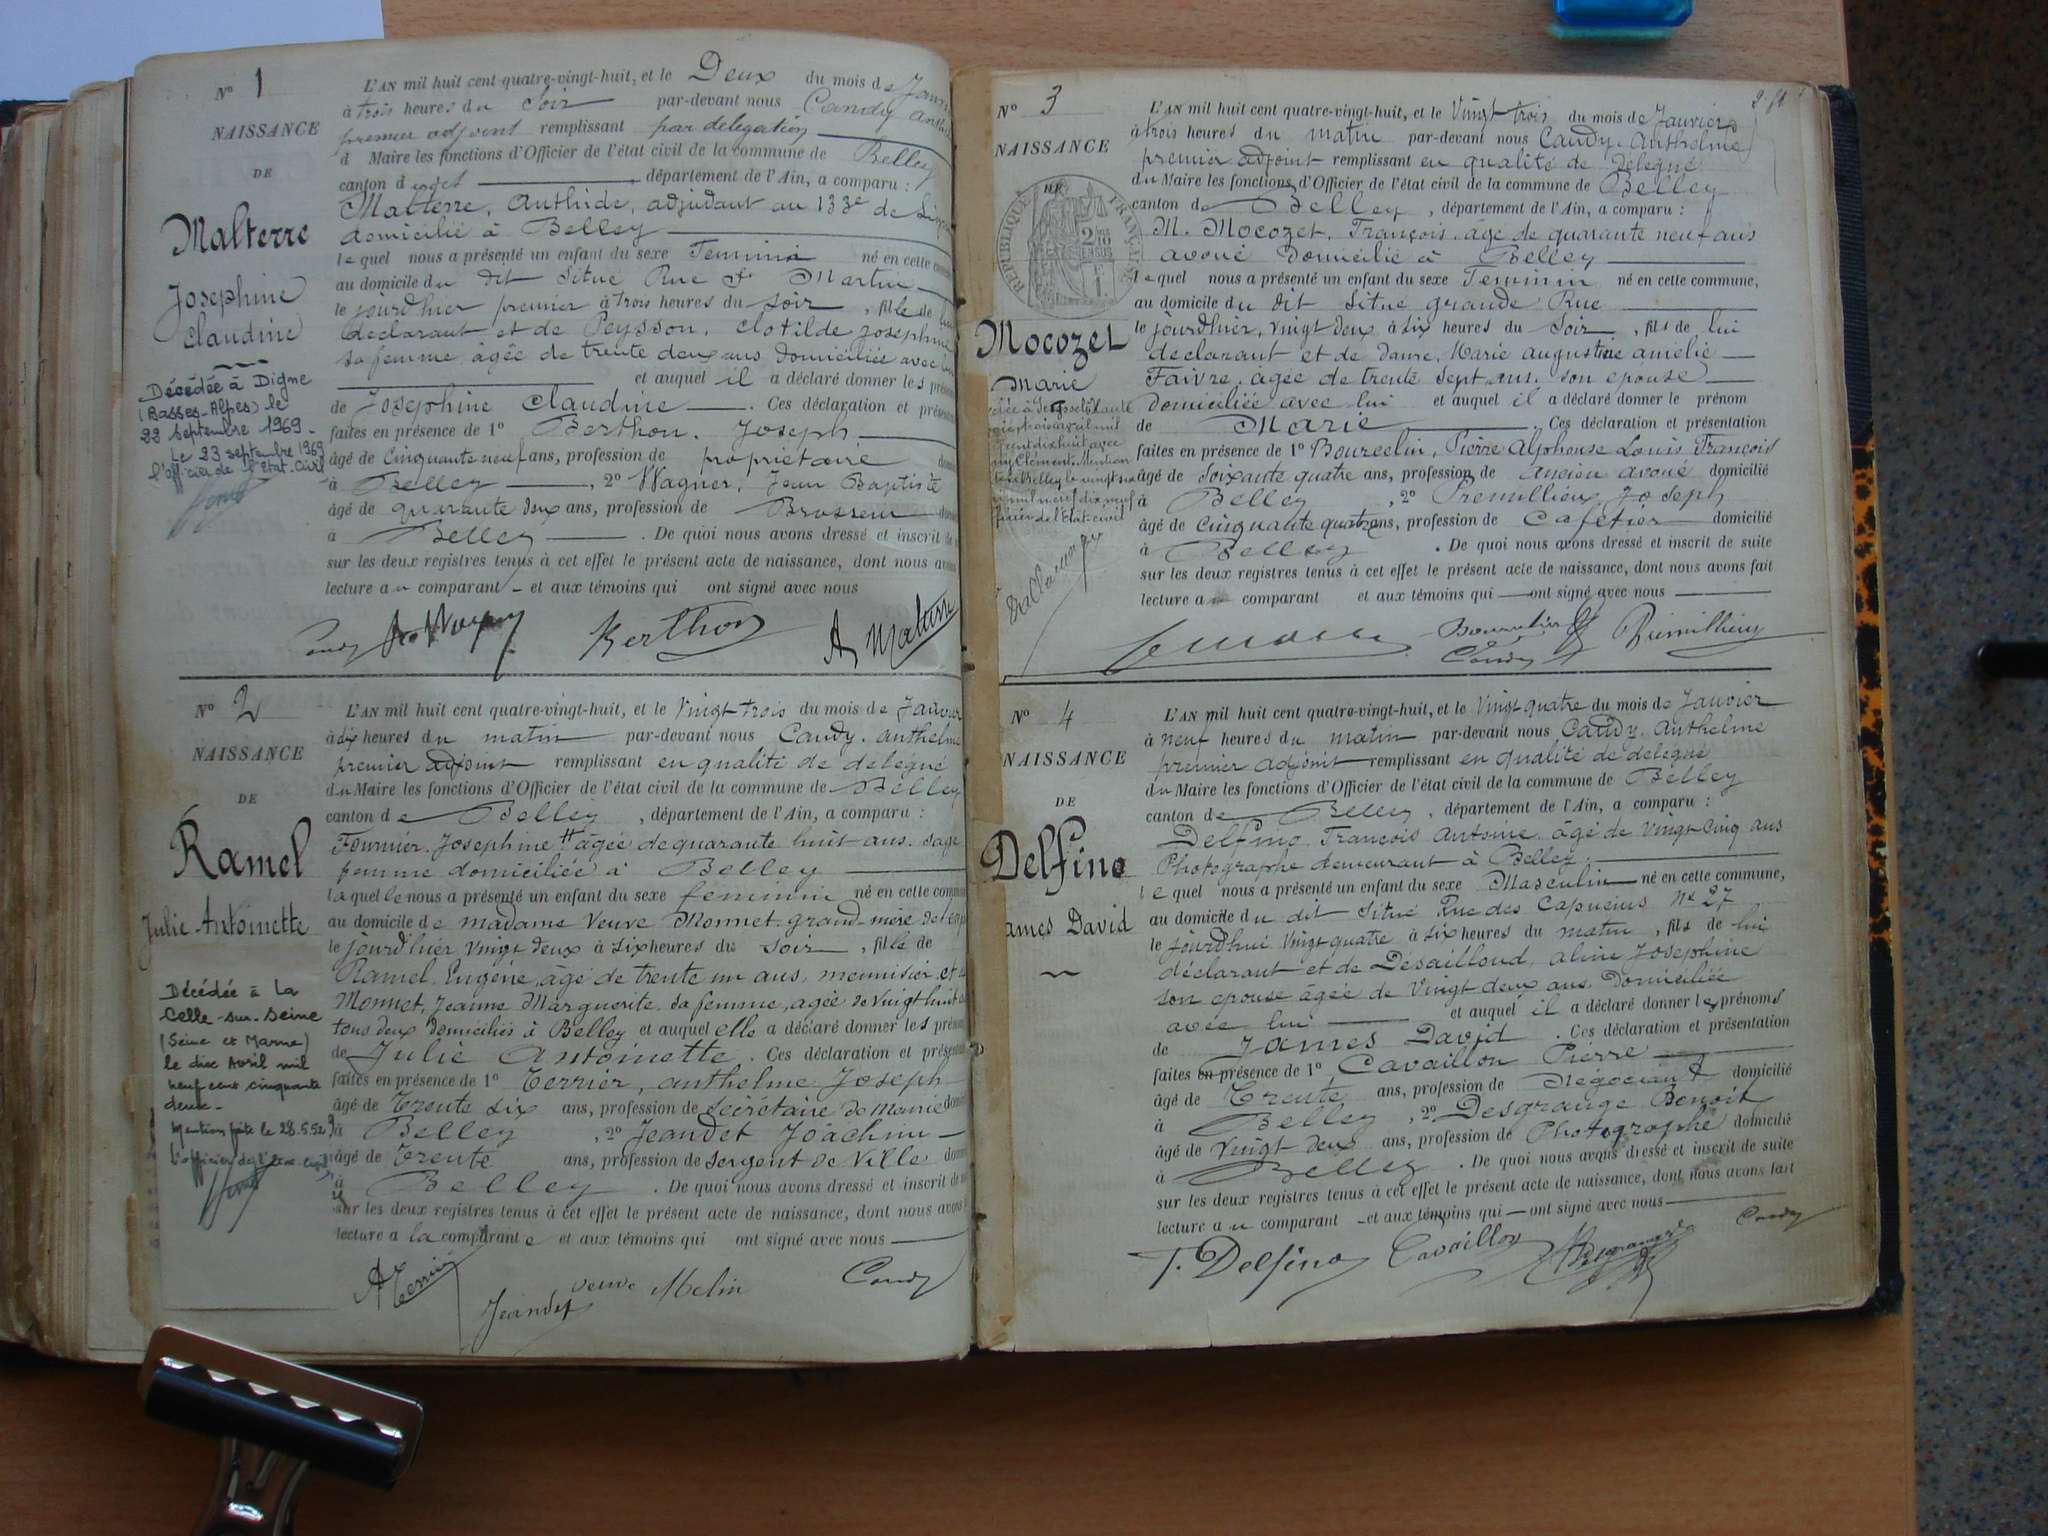 N° 1
NAISSANCE
DE
Malterre
Josephine
Claudine
Décédée à Digne
(Basses-Alpes) le
22 septembre 1969.
Le 23 septembre 1969
l'officier de l'Etat-Civil
L'AN mil huit cent quatre-vingt-huit, et le Deux du mois de
à trois heures du Soir par-devant nous Candy
premier adjoint remplissant par délégation
d Maire les fonctions d'Officier de l'état civil de la commune de Belley
canton dudit département de l'Ain, a comparu :
Malterre, Anthide, adjudant au 133e de
domicilié à Belley
lequel nous a présenté un enfant du sexe Feminin né en cette
au domicile du dit Situé Rue St Martin
le jourdhier premier à trois heures du soir, fille de
déclarant et de Peysson, Clotilde Josephine
sa femme âgée de trente deux ans domiciliée avec
et auquel il a déclaré donner les
de Josephine Claudine. Ces déclaration et
faites en présence de 1° Berthon, Joseph
âgé de Cinquante neuf ans, profession de propriétaire
à Belley, 2° Wagner, Jean Baptiste
âgé de quarante deux ans, profession de Brasseur
à Belley. De quoi nous avons dressé et inscrit
sur les deux registres tenus à cet effet le présent acte de naissance, dont nous
lecture au comparant et aux témoins qui ont signé avec nous
Candy Berthon A Malterre
N° 2
NAISSANCE
DE
Ramel
Julie Antoinette
Décédée à La
Celle-sur-Seine
(Seine et Marne)
le dix Avril mil
neuf cent cinquante
deux.
Mention faite le 28.5.52
L'officier de l'état civil
L'AN mil huit cent quatre-vingt-huit, et le Vingt trois du mois de Janvier
à dix heures du matin par-devant nous Candy, Anthelme
premier adjoint remplissant en qualité de délégué
du Maire les fonctions d'Officier de l'état civil de la commune de Belley
canton de Belley, département de l'Ain, a comparu :
Fournier, Josephine âgée de quarante huit ans, sage
femme domiciliée à Belley
laquelle nous a présenté un enfant du sexe féminin né en cette
au domicile de madame Veuve Monnet grand-mère de
le jourdhier vingt deux à six heures du soir, fille de
Ramel, Eugène, âgé de trente un ans, menuisier et
Monnet, Jeanne Marguerite, sa femme, agée de vingt huit
tous deux domiciliés à Belley et auquel elle a déclaré donner les
de Julie Antoinette. Ces déclaration et
faites en présence de 1° Terrier, anthelme Joseph
âgé de Trente six ans, profession de Secrétaire de Mairie
à Belley, 2° Jeandet Joachim
âgé de Trente ans, profession de Sergent de Ville
à Belley. De quoi nous avons dressé et inscrit
sur les deux registres tenus à cet effet le présent acte de naissance, dont nous avons
lecture a la comparante et aux témoins qui ont signé avec nous
A Terrier Jeandet veuve Melin Candy
N° 3
NAISSANCE
DE
RÉPUBLIQUE FRANÇAISE
Mocozet
Marie
L'AN mil huit cent quatre-vingt-huit, et le Vingt trois du mois de Janvier
à trois heures du matin par-devant nous Candy, Anthelme
premier adjoint remplissant en qualité de délégué
du Maire les fonctions d'Officier de l'état civil de la commune de Belley
canton de Belley, département de l'Ain, a comparu :
M. Mocozet, François, âgé de quarante neuf ans
avoué domicilié à Belley
lequel nous a présenté un enfant du sexe Feminin né en cette commune,
au domicile du dit situé grande Rue
le jourdhier, vingt deux à six heures du soir, fils de lui
déclarant et de dame, Marie augustine amélie
Faivre, âgée de trente sept ans, son épouse
domiciliée avec lui et auquel il a déclaré donner le prénom
de Marie. Ces déclaration et présentation
faites en présence de 1° Pierre Alphonse Louis François
âgé de Soixante quatre ans, profession de ancien avoué domicilié
à Belley, 2° Premillieu Joseph
âgé de cinquante quatre ans, profession de Cafetier domicilié
à Belley. De quoi nous avons dressé et inscrit de suite
sur les deux registres tenus à cet effet le présent acte de naissance, dont nous avons fait
lecture au comparant et aux témoins qui ont signé avec nous
Candy Premillieu
N° 4
NAISSANCE
DE
Delfino
James David
L'AN mil huit cent quatre-vingt-huit, et le Vingt quatre du mois de Janvier
à neuf heures du matin par-devant nous Candy, Anthelme
premier adjoint remplissant en qualité de délégué
du Maire les fonctions d'Officier de l'état civil de la commune de Belley
canton de Belley, département de l'Ain, a comparu :
Delfino, François Antoine, âgé de vingt cinq ans
Photographe demeurant à Belley
lequel nous a présenté un enfant du sexe Masculin né en cette commune,
au domicile du dit situé Rue des Capucins N° 27
le jourdhui vingt quatre à six heures du matin, fils de lui
déclarant et de Désailloud, aline Josephine
son épouse âgée de vingt deux ans, domiciliée
avec lui et auquel il a déclaré donner les prénoms
de James David. Ces déclaration et présentation
faites en présence de 1° Cavaillon Pierre
âgé de Trente ans, profession de Négociant domicilié
à Belley, 2° Desgrange Benoit
âgé de vingt deux ans, profession de Photographe domicilié
à Belley. De quoi nous avons dressé et inscrit de suite
sur les deux registres tenus à cet effet le présent acte de naissance, dont nous avons fait
lecture au comparant et aux témoins qui ont signé avec nous
F. Delfino Cavaillon Desgrange Candy